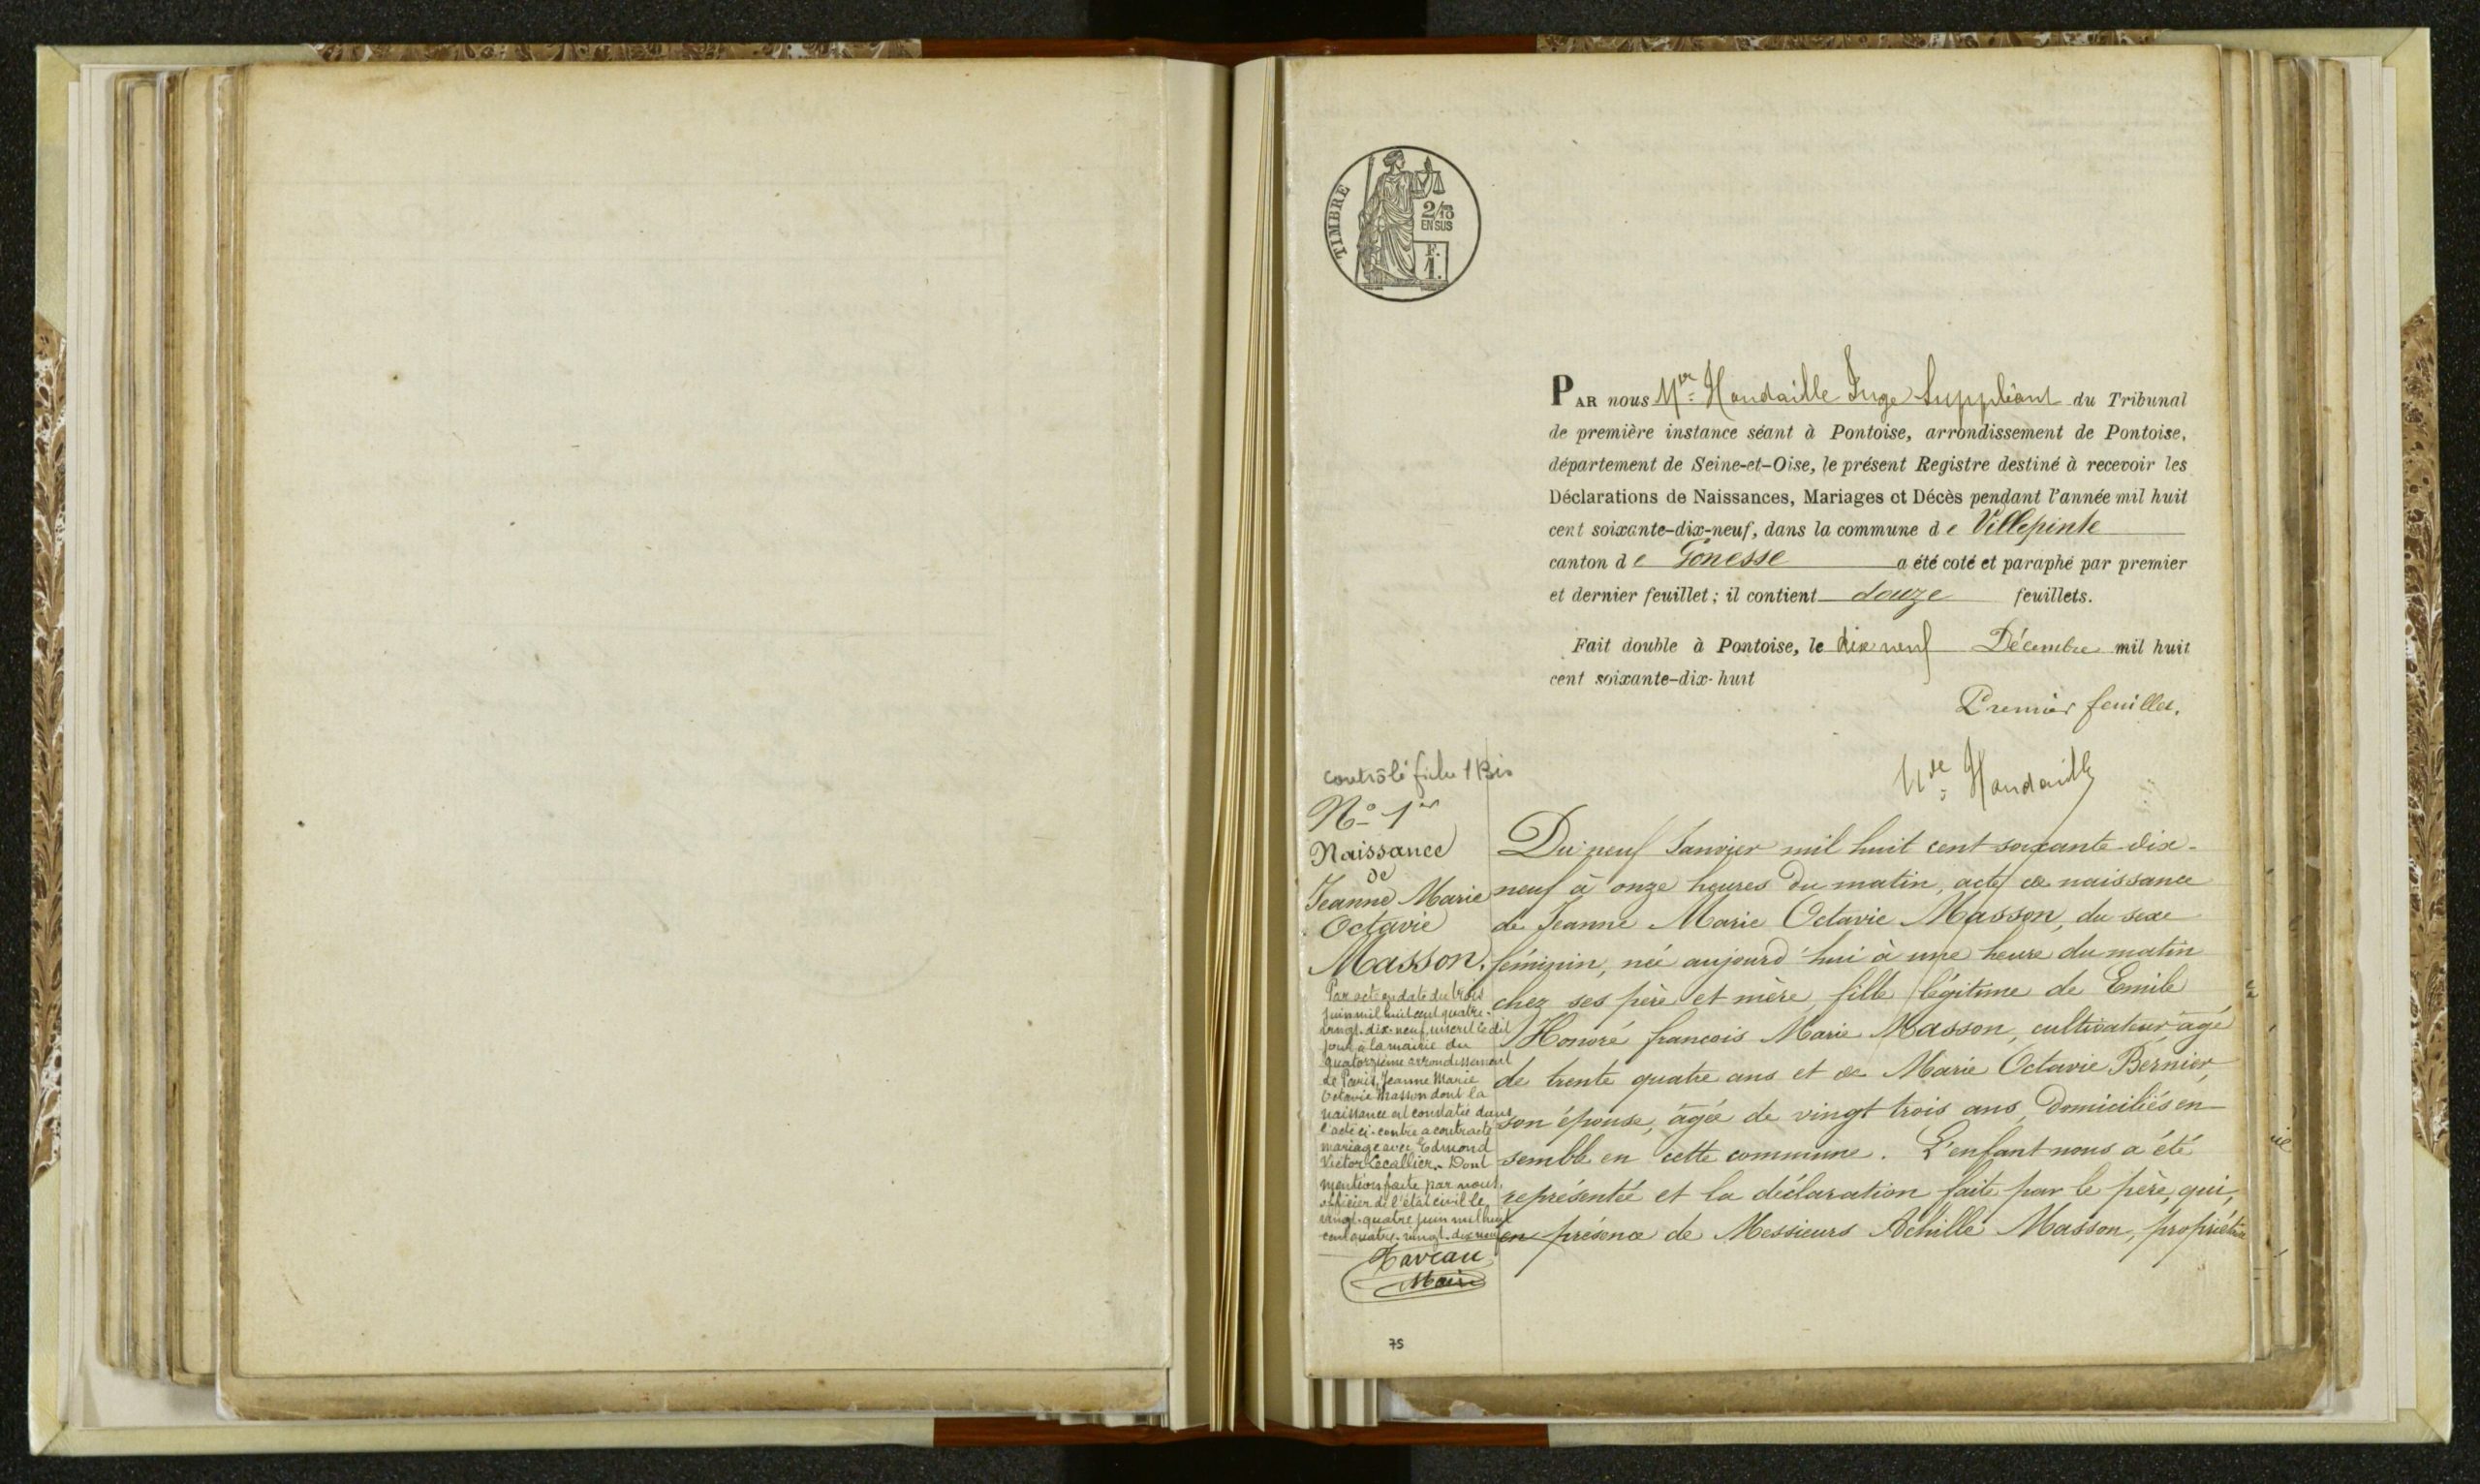 TIMBRE
2/10
EN SUS
F.
1.
PAR nous Mr Haudaille Juge Suppléant du Tribunal
de première instance séant à Pontoise, arrondissement de Pontoise,
département de Seine-et-Oise, le présent Registre destiné à recevoir les
Déclarations de Naissances, Mariages et Décès pendant l'année mil huit
cent soixante-dix-neuf, dans la commune de Villepinte
canton de Gonesse a été coté et paraphé par premier
et dernier feuillet; il contient douze feuillets.
Fait double à Pontoise, le dix neuf Décembre mil huit
cent soixante-dix-huit
Premier feuillet.
Haudaille
contrôlé fiche 1 Bis
No 1er
Naissance
de
Jeanne Marie
Octavie
Masson.
Par acte en date du trois
juin mil huit cent quatre-
vingt-dix-neuf, inscrit le dit
jour à la mairie du
quatorzième arrondissement
de Paris, Jeanne Marie
Octavie Masson dont la
naissance est constatée dans
l'acte ci-contre a contracté
mariage avec Edmond
Victor Lecallier. Dont
mention faite par nous,
officier de l'état civil le
vingt-quatre juin mil huit
cent quatre-vingt-dix neuf
Taveau
Maire
Du neuf Janvier mil huit cent soixante-dix-
neuf à onze heures du matin, acte de naissance
de Jeanne Marie Octavie Masson, du sexe
féminin, née aujourd'hui à une heure du matin
chez ses père et mère, fille légitime de Emile
Honoré françois Marie Masson, cultivateur âgé
de trente quatre ans et de Marie Octavie Bernier,
son épouse, âgée de vingt trois ans, domiciliés en
semble en cette commune. L'enfant nous a été
représentée et la déclaration faite par le père, qui,
en présence de Messieurs Achille Masson, propriétaire
75